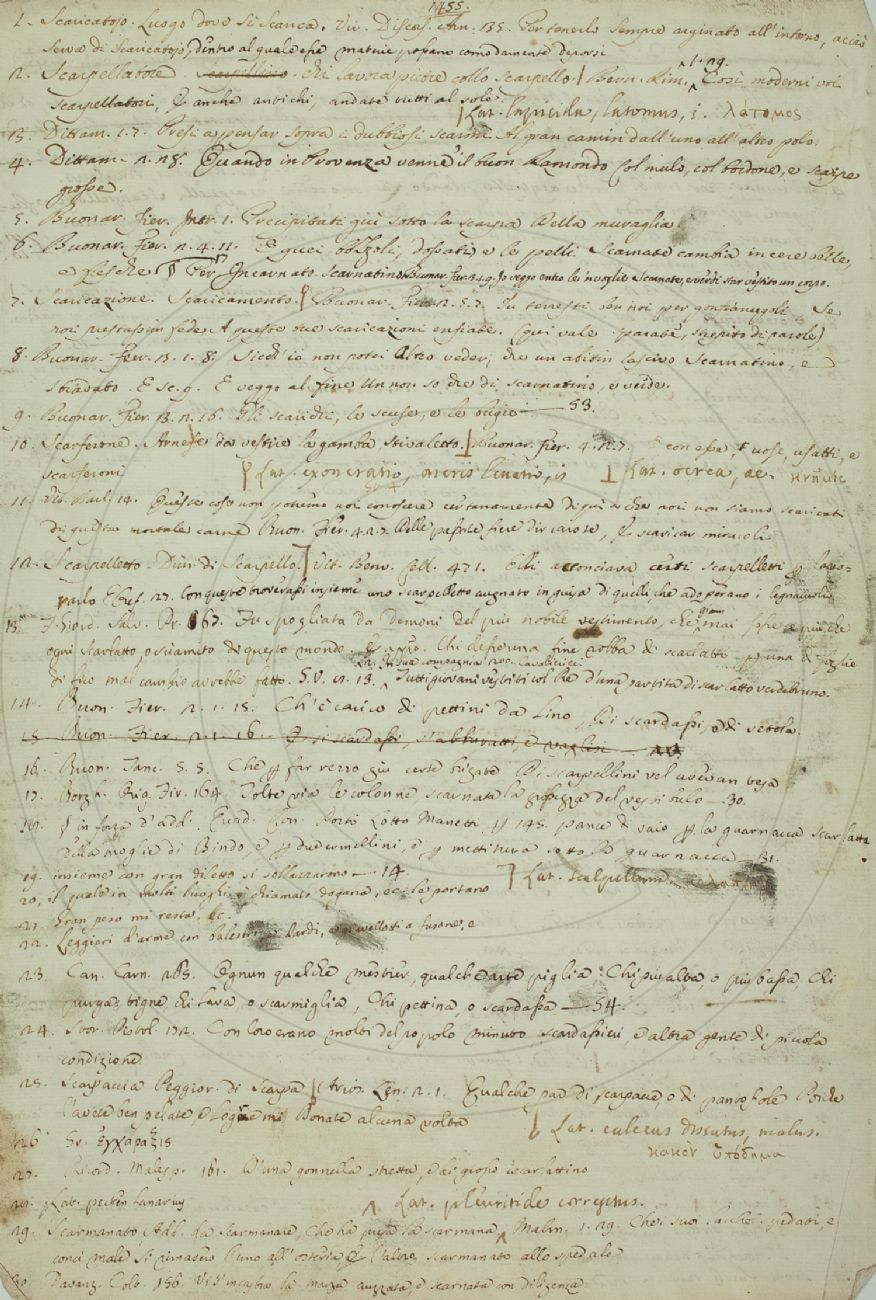 1455.
1. Scaricatojo. Luogo dove si scarica. Viv. Discors. Arn. 135. Per tenerlo sempre arginato all'intorno, acciò
serva di scaricatojo, dentro al quale esse materie possano comodamente deporsi
2. Scarpellatore. che lavora pietre collo scarpello. Bern. Rim. 1. 29. Così moderni voi
scarpellatori, Et anche antichi, andate tutti al sole.
Lat. lapicida, latomus, i. λάτομος
13. Dittam. 1. 7. Presi a pensar sopra i dubbiosi scarmi Al gran camin dall'uno all'altro polo.
4. Dittam. 2. 28. Quando in Provenza venne il buon Ramondo Col mulo, col bordone, e scarpe
grosse.
5. Buonar. Fier. Intr. 1. Precipitati giù sotto la scarpa Della muraglia.
6. Buonar. Fier. 2. 4. 11. E quei dossati, e le pelli Scarnate cambia in cere belle,
e fresche Per Incarnato. Scarnatino. Buonar. Fier. 3. 4. 9. Io veggo entro le invoglie Scarnato, e verdi star vestito un corpo.
7. Scaricazione. Scaricamento. Buonar. Fier. 2. 5. 7. Tu terresti ben noi per gonzi Se
noi prestassim fede A queste tue scaricazioni enfiate. (qui vale parate, strepito di parole)
8. Buonar. Fier. 3. 1. 8. Sicch'io non potei Altro veder, che un abitin lascivo Scarnatino, e
sbiadato. E sc. 9. E veggo al fine Un non so che di scarnatino, e verde.
9. Buonar. Fier. 3. 2. 16. Gli scarichi, le scuse, e le bugie — 53.
10. Scarferone. Arnese da vestire la gamba stivaletto. Buonar. Fier. 4. 2. 7. E con essa, uose, usatti, e
scarferoni
Lat. exoneratio, oneris levatio, is Lat. ocrea, ae. κνημίς
11. Vit. Barl. 14. Queste cose non potemo noi conoscere certanamente di qui a che noi non siamo scaricati
di questa mortale carne Buon. Fier. 4. 2. 7. Delle passate fiere dir carote, Et scaricar miracoli
12. Scarpelletto. Dim. di Scarpello. Vit. Benv. Cell. 471. Elli acconciava certi scarpelletti
27. Con queste troverassi insieme uno scarpelletto augnato in guisa di quelli, che adoperano i legnaiuoli
13. Fr. Giord. Salv. Pr. 67. Fu spogliata da Demoni del più nobile vestimento, che giammai fosse più che
ogni scarlatto, o sciamito di questo mondo. Et appr. Chi desse una fine robba di scarlatto per una di foglie
di fico mal cambio avrebbe fatto. G. V. 9. 13. In sua compagnia 200. Cavalieri Tutti giovani vestiti col Re d'una partita di scarlatto verdebruno.
14. Buon. Fier. 2. 1. 15. Ch'è carico di pettini da lino, Di scardassi, e di setola.
15. Buon. Fier. 2. 1. 16. E di scardassi, buratti, e vagliere
16. Buon. Tanc. 5. 5. Che per far rezzo giù certe brigate Di scarpellini vel avevan tesa
17. Borgh. Rag. Fir. 164. Tolte via le colonne scarnata la grossezza del vestibulo — 30.
18. in forza d'add. Quad. Con. Porto Lotto Manetti per 145. pance di vaio per la guarnacca scarlatta
della moglie di Bindo, e per due ermellini, e per mettitura sotto la guarnacca — 31.
19. insieme con gran diletto si sollazzarono — 14. Lat. scalpellum
20. il quale in molti luoghi è chiamato dogana, e le portano
21. Gran peso mi resta. &c.
22. Leggieri d'arme con balestri, dardi, e giavellotti a fusone, e
23. Can. Carn. 265. Ognun qualche mestier, qualche arte piglia Chi più alta, o più bassa Chi
purga, tigne chi lava, o scarmiglia, Chi pettina, o scardassa — 54.
24. Stor. Pistol. 172. Con loro erano molti del popolo minuto scardassieri, e altra gente di piccola
condizione
25. Scarpaccia Peggior. di Scarpa. Arios. Len. 2. 1. Qualche paio di scarpacce, o di pantofole Poiche
l'avete ben pelate, e logore mi Donate alcuna volta
Lat. calceus dissutus, malus.
κακὸν ὑπόδημα
26. Gr. ἐγχάραξις
27. Ricord. Malesp. 161. D'una gonnella stretta, d'un grosso iscarlattino
28. Lat. pecten lanarius Lat. pleuritide correptus.
29. Scarmanato, Add. da Scarmanare, che ha presa la scarmana. Malm. 1. 29. Che i suoi lacchè spedati, e
conci male Si rimasero l'uno all'osteria, E l'altro scarmanato allo spedale
30. Davanz. Colt. 156. Vi s'incastra la marza aguzzata, e scarnata con diligenza